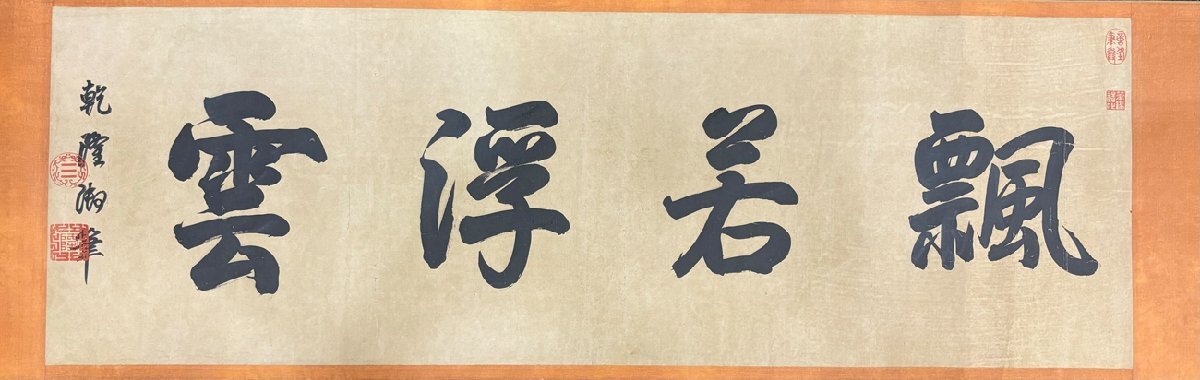 飄若浮雲
乾隆御筆